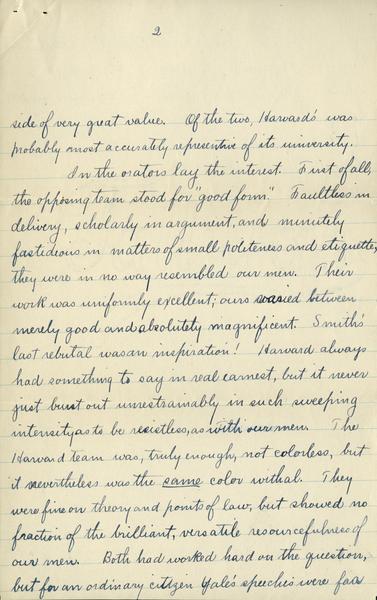 2
side of very great value. Of the two, Harvard's was
probably most accurately representive of its university.
In the orators lay the interest. First of all,
the opposing team stood for "good form." Faultless in
delivery, scholarly in argument, and minutely
fastideous in matters of small politeness and etiquette,
they were in no way resembled our men. Their
work was uniformly excellent; ours varied between
merely good and absolutely magnificent. Smith's
last rebutal was an inspiration! Harvard always
had something to say in real earnest, but it never
just burst out unrestrainably in such sweeping
intensity as to be resistless, as with our men. The
Harvard team was, truly enough, not colorless, but
it nevertheless was the same color withal. They
were fine on theory and points of law, but showed no
fraction of the brilliant, versatile resourcefulness of
our men. Both had worked hard on the question,
but for an ordinary citizen Yale's speeches were far